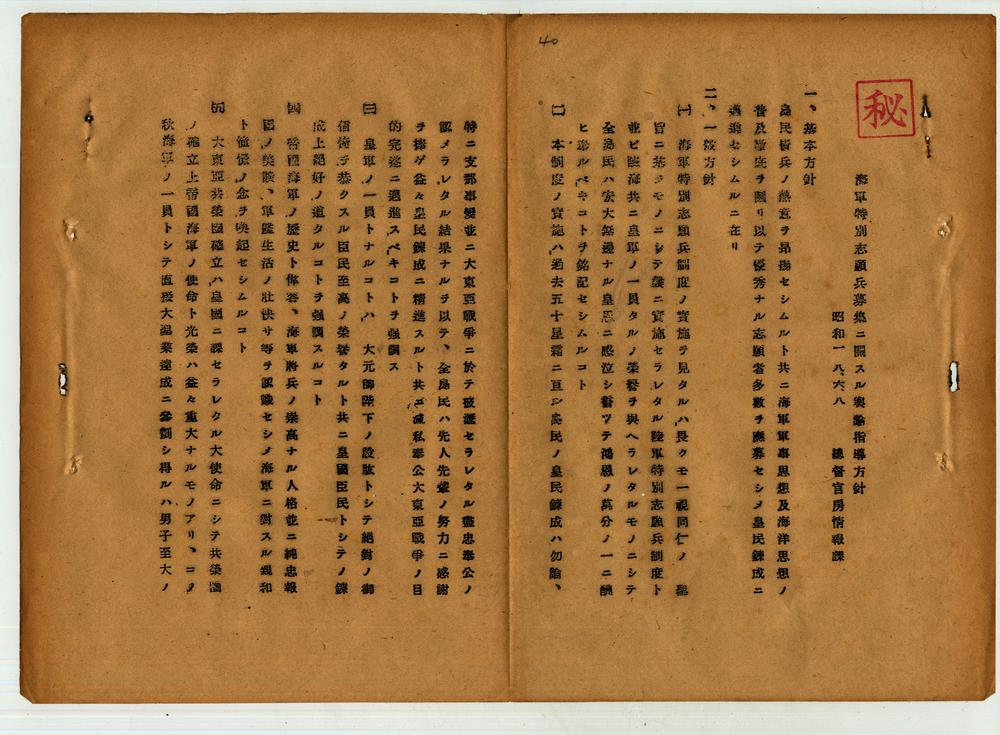 40
秘
海軍特別志願兵募集ニ關スル輿論指導方針
昭和一八、六、八　總督官房情報課
一、基本方針
島民皆兵ノ熱意ヲ昂揚セシムルト共ニ海軍軍事思想及海洋思想ノ
普及徹底ヲ圖リ以テ優秀ナル志願者多數ヲ應募セシメ皇民鍊成ニ
邁進セシムルニ在リ
二、一般方針
㈠　海軍特別志願兵制度ノ實施ヲ見タルハ畏クモ一視同仁ノ　聖
旨ニ基クモノニシテ曩ニ實施セラレタル陸軍特別志願兵制度ト
並ビ陸海共ニ皇軍ノ一員タルノ榮譽ヲ與ヘラレタルモノニシテ
全島民ハ宏大無邊ナル皇恩ニ感泣シ誓ツテ鴻恩ノ萬分ノ一ニ酬
ヒ奉ルベキコトヲ銘記セシムルコト
㈡　本制度ノ實施ハ過去五十星霜ニ亘ル島民ノ皇民鍊成ハ勿論、
特ニ支那事變並ニ大東亞戰爭ニ於テ披瀝セラレタル盡忠奉公ノ
認メラレタル結果ナルヲ以テ、全島民ハ先人先輩ノ努力ニ感謝
ヲ捧ゲ益々皇民鍊成ニ精進スルト共ニ滅私奉公大東亞戰爭ノ目
的完遂ニ邁進スベキコトヲ强調ス
㈢　皇軍ノ一員トナルコトハ　大元帥陛下ノ股肱トシテ絕對ノ御
信倚ヲ忝クスル臣民至高ノ榮譽タルト共ニ皇國臣民トシテノ鍊
成上絕好ノ道タルコトヲ强調スルコト
㈣　帝國海軍ノ歷史ト偉容、海軍將兵ノ崇高ナル人格並ニ純忠報
國ノ美談、軍艦生活ノ壯快サ等ヲ認識セシメ海軍ニ對スル親和
ト憧憬ノ念ヲ喚起セシムルコト
㈤　大東亞共榮圈確立ハ皇國ニ課セラレタル大使命ニシテ共榮圈
ノ確立上帝國海軍ノ使命ト光榮ハ益々重大ナルモノアリ、コノ
秋海軍ノ一員トシテ直接大業達成ニ參劃シ得ルハ男子至大ノ